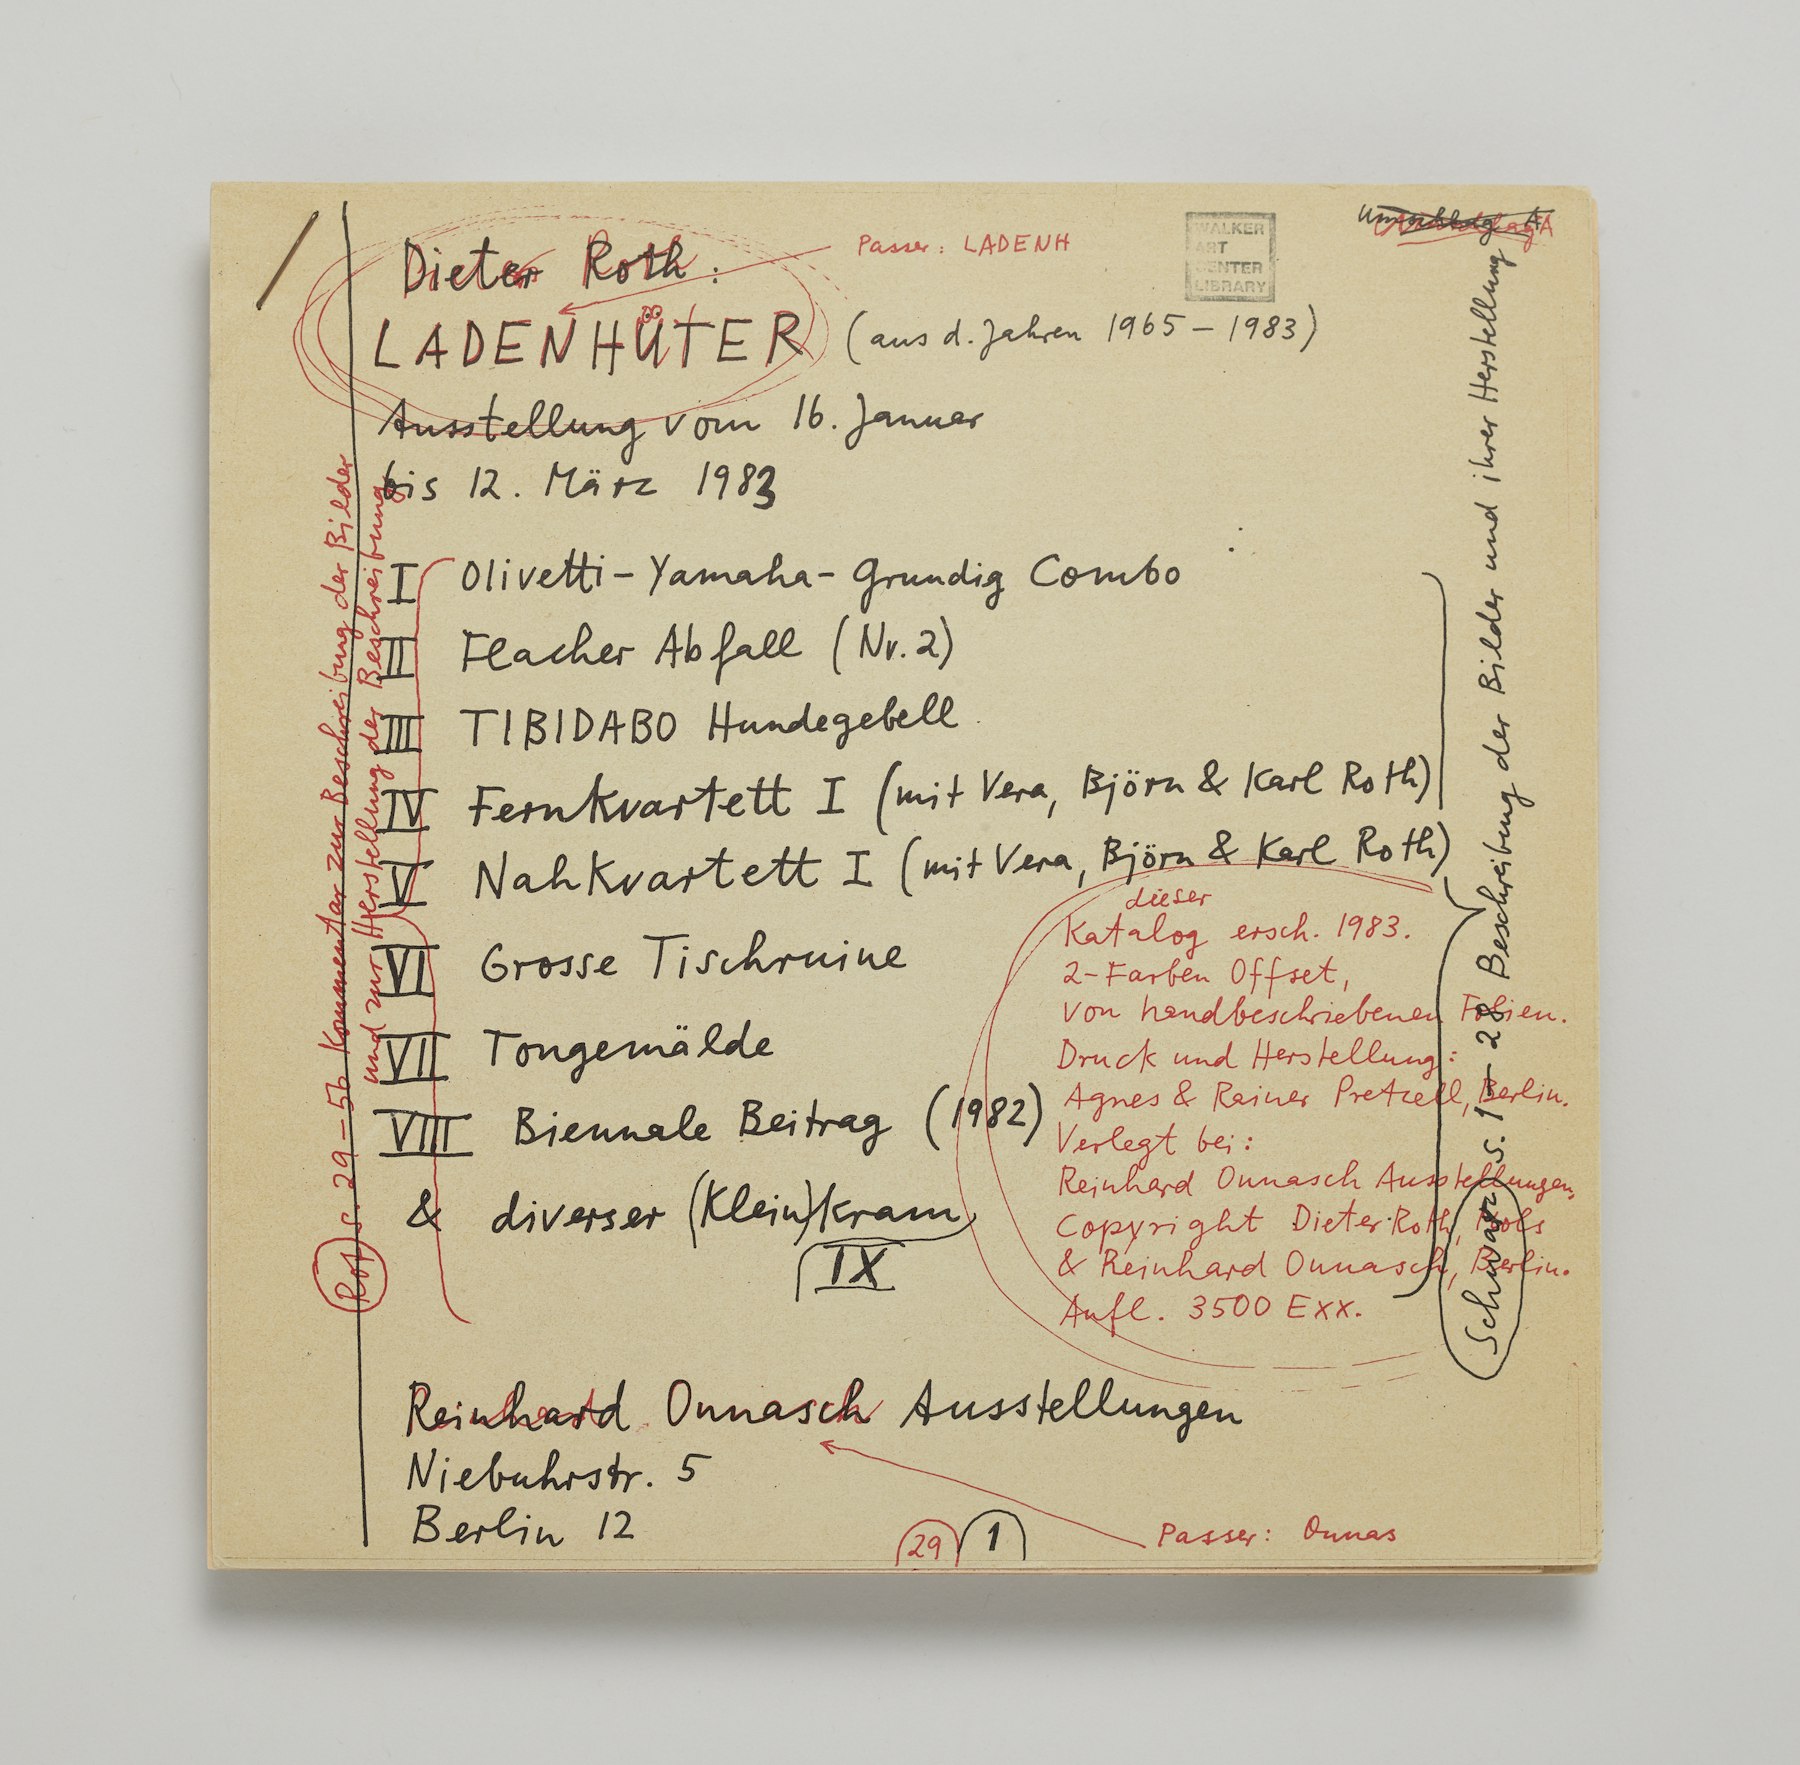 Dieter Roth:
LADENHÜTER (aus d. Jahren 1965 – 1983)
Passer: LADENH
WALKER
ART
CENTER
LIBRARY
Umschlag A
Ausstellung vom 16. Januar
bis 12. März 1983
I Olivetti-Yamaha-Grundig Combo
II Flacher Abfall (Nr. 2)
III TIBIDABO Hundegebell
IV Fernkvartett I (mit Vera, Björn & Karl Roth)
V Nahkvartett I (mit Vera, Björn & Karl Roth)
VI Grosse Tischruine
VII Tongemälde
VIII Biennale Beitrag (1982)
& diverser (Klein)kram
IX
dieser
Katalog ersch. 1983.
2-Farben Offset,
von handbeschriebenen Folien.
Druck und Herstellung:
Agnes & Rainer Pretzell, Berlin.
Verlegt bei:
Reinhard Onnasch Ausstellungen,
Copyright Dieter Roth,
& Reinhard Onnasch, Berlin.
Aufl. 3500 Exx.
Reinhard Onnasch Ausstellungen
Niebuhrstr. 5
Berlin 12
29 1
Passer: Onnas
Rot s. 29–56 Kommentar zur Beschreibung der Bilder
und zur Herstellung der Beschreibung
Schwarz s. 1 – 28 Beschreibung der Bilder und ihrer Herstellung